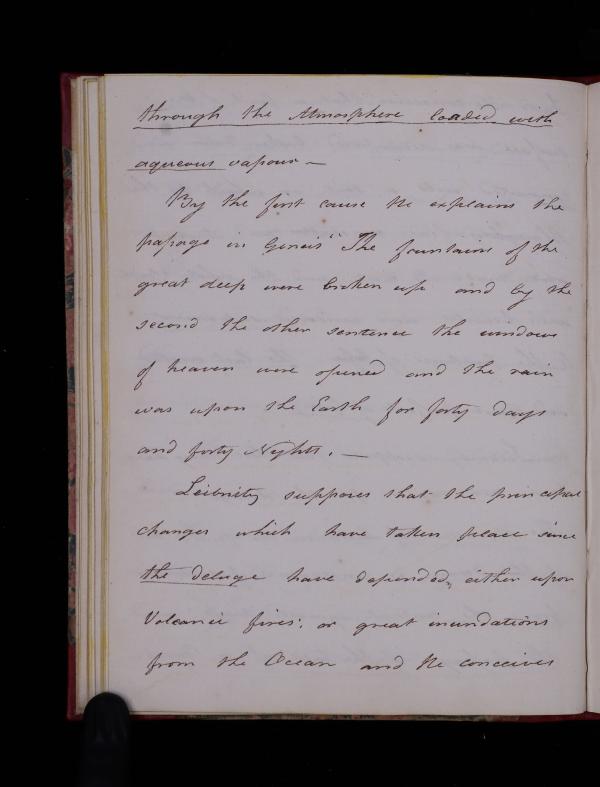 through the Atmosphere loaded with
aqueous vapour —
By the first cause He explains the
passage in Genesis "The fountains of the
great deep were broken up and by the
second the other sentence the windows
of heaven were opened and the rain
was upon the Earth for forty days
and forty Nights. —
Leibnitz supposes that the principal
changes which have taken place since
the deluge have depended, either upon
Volcanic fires; or great inundations
from the Ocean and He conceives